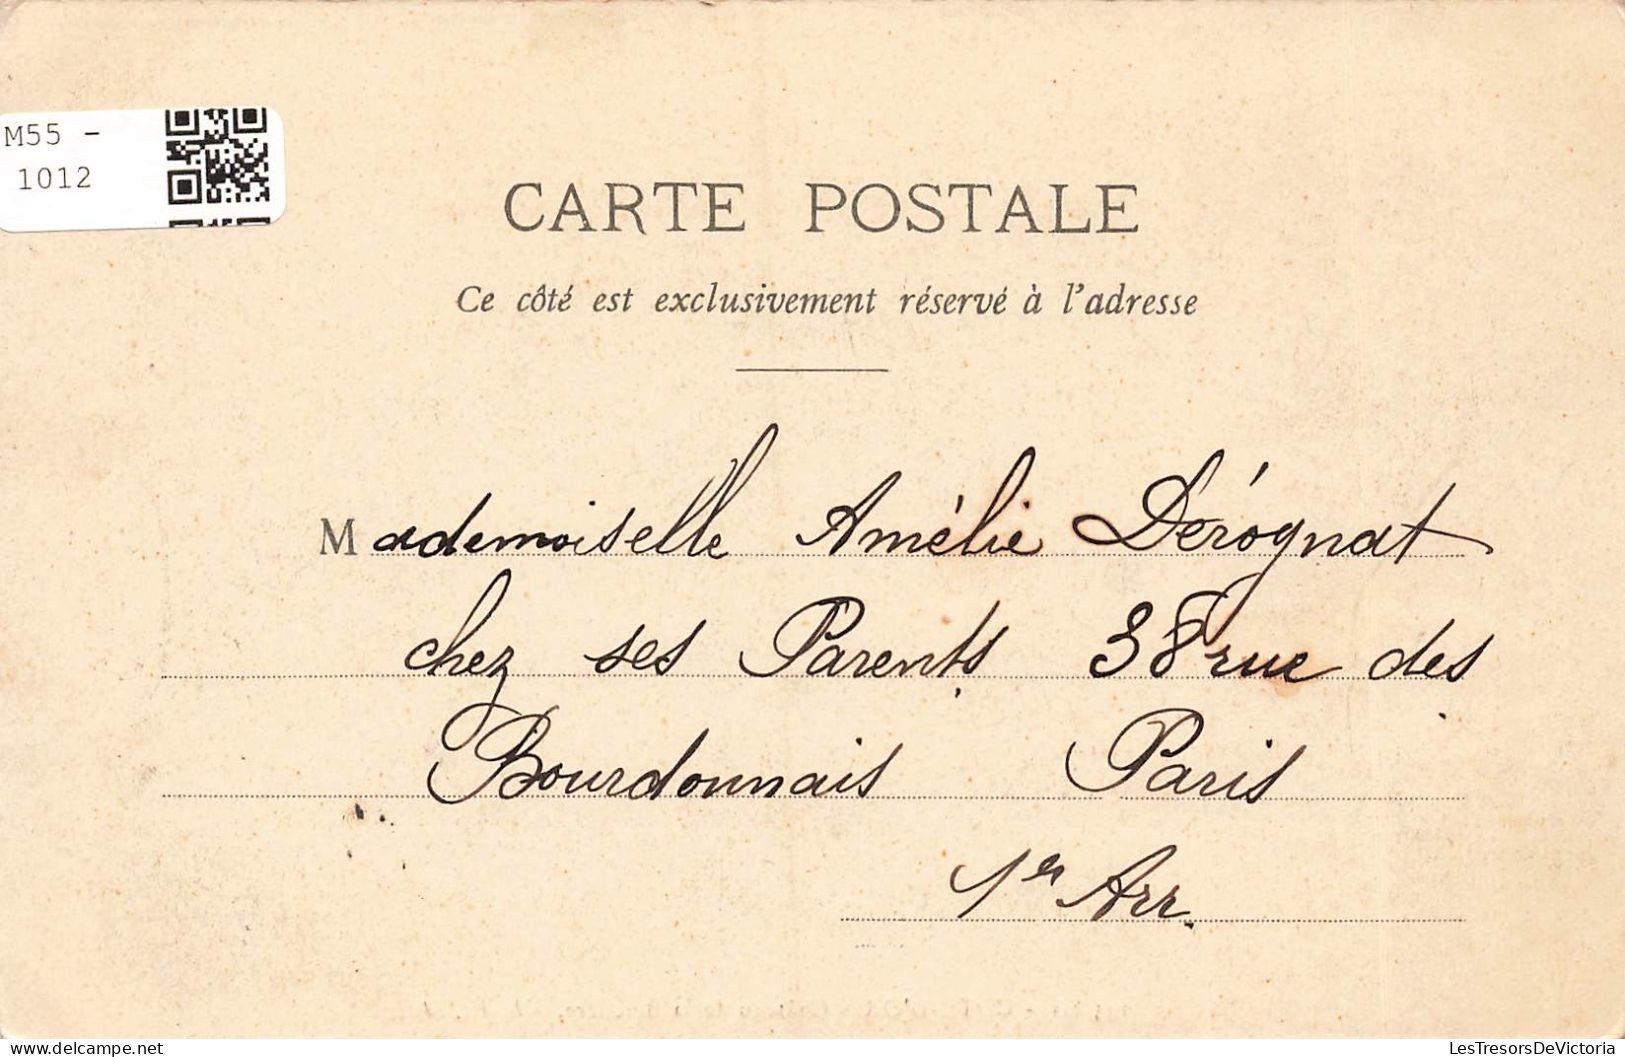 M55 -
1012
CARTE POSTALE
Ce côté est exclusivement réservé à l'adresse
Mademoiselle Amélie Dérognat
chez ses Parents 38 rue des
Bourdonnais Paris
1er Arr.
delcampe.net
LesTresorsDeVictoria